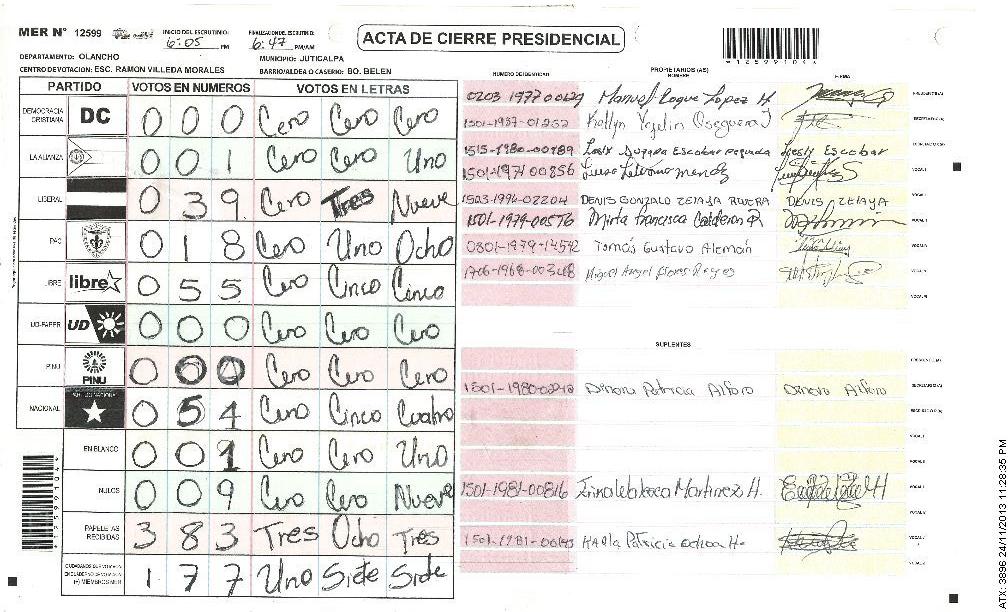 MER N° 12599
INICIO DEL ESCRUTINIO: 6:05 PM
FINALIZACION DEL ESCRUTINIO: 6:47 PM/AM
ACTA DE CIERRE PRESIDENCIAL
DEPARTAMENTO: OLANCHO
MUNICIPIO: JUTICALPA
CENTRO DE VOTACION: ESC. RAMON VILLEDA MORALES
BARRIO/ALDEA O CASERIO: BO. BELEN
PARTIDO VOTOS EN NUMEROS VOTOS EN LETRAS
DEMOCRACIA CRISTIANA DC 0 0 0 Cero Cero Cero
LA ALIANZA 0 0 1 Cero Cero Uno
LIBERAL 0 3 9 Cero Tres Nueve
PAC 0 1 8 Cero Uno Ocho
LIBRE libre 0 5 5 Cero Cinco Cinco
UD-FAPER UD 0 0 0 Cero Cero Cero
PINU PINU 0 0 0 Cero Cero Cero
NACIONAL 0 5 4 Cero Cinco Cuatro
EN BLANCO 0 0 1 Cero Cero Uno
NULOS 0 0 9 Cero Cero Nueve
PAPELETAS RECIBIDAS 3 8 3 Tres Ocho Tres
(+) MIEMBROS MER 1 7 7 Uno Siete Siete
NUMERO DE IDENTIDAD
PROPIETARIOS (AS)
NOMBRE
FIRMA
Manuel Roque Lopez H. PRESIDENTE(A)
1501-1987-01237 SECRETARIO(A)
1515-1980-00789 Escobar Escobar
1501-1971-00856 Mendez VOCAL I
1503-1994-02204 DENIS GONZALO ZELAYA RIVERA DENIS ZELAYA
1501-1979-00576 Mirta Francisca Calderon R.
0801-1979-14592 Tomás Gustavo Alemán
Miguel Angel Flores Reyes
SUPLENTES
PRESIDENTE(A)
Dinora Patricia Alfaro Dinora Alfaro SECRETARIO(A)
1501-1981-00816 Martinez H.
Karla Patricia Ochoa H.
ATX: 3996 24/11/2013 11:28:35 PM